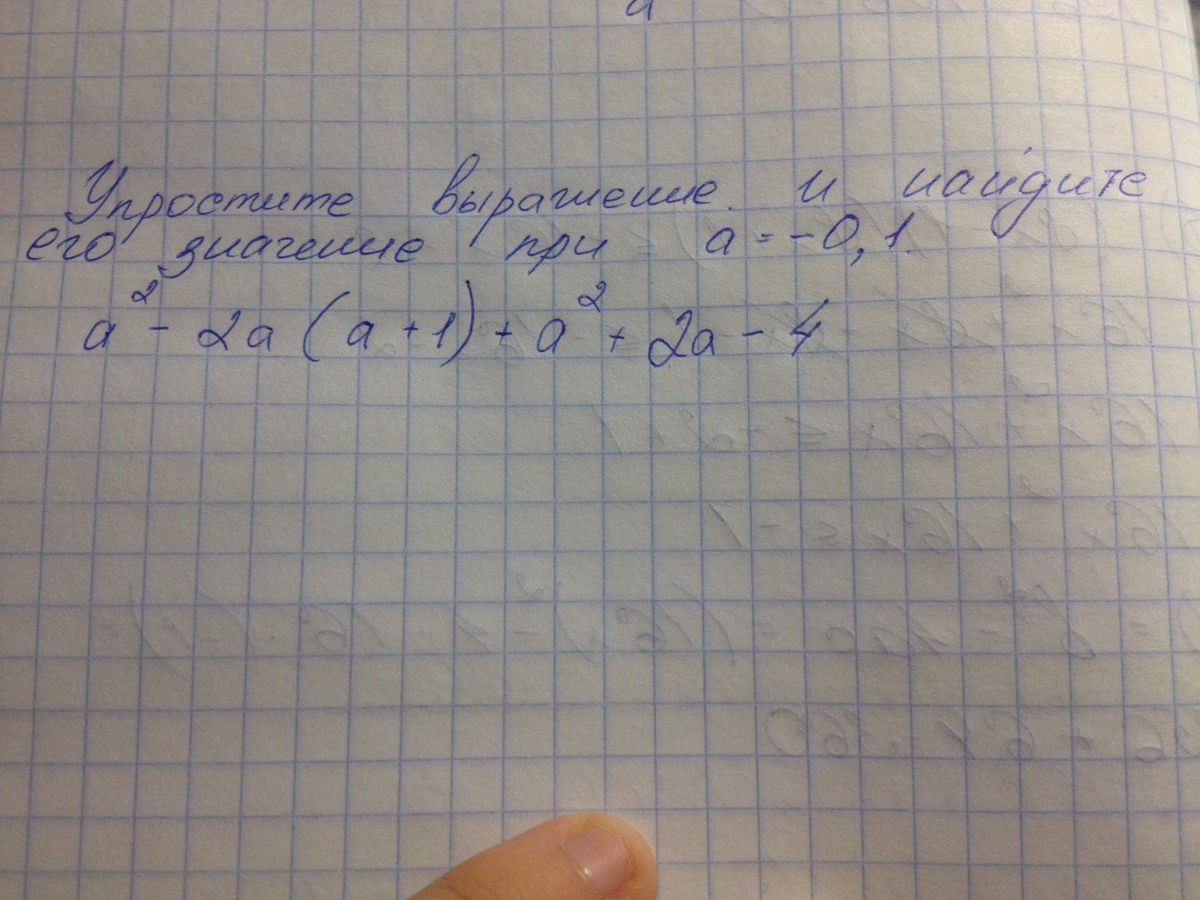 Упростите выражение и найдите
его значение при a = -0,1.
a² - 2a (a + 1) + a² + 2a - 4